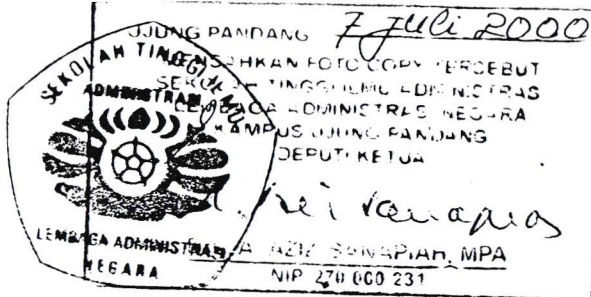 UJUNG PANDANG 7 Juli 2000
MENSAHKAN FOTO COPY TERSEBUT
SEKOLAH TINGGI ILMU ADMINISTRASI
LEMBAGA ADMINISTRASI NEGARA
KAMPUS UJUNG PANDANG
DEPUTI KETUA
AZIZ SANAPIAH, MPA
NIP 270 000 231
SEKOLAH TINGGI ILMU
ADMINISTRASI
LEMBAGA ADMINISTRASI
NEGARA